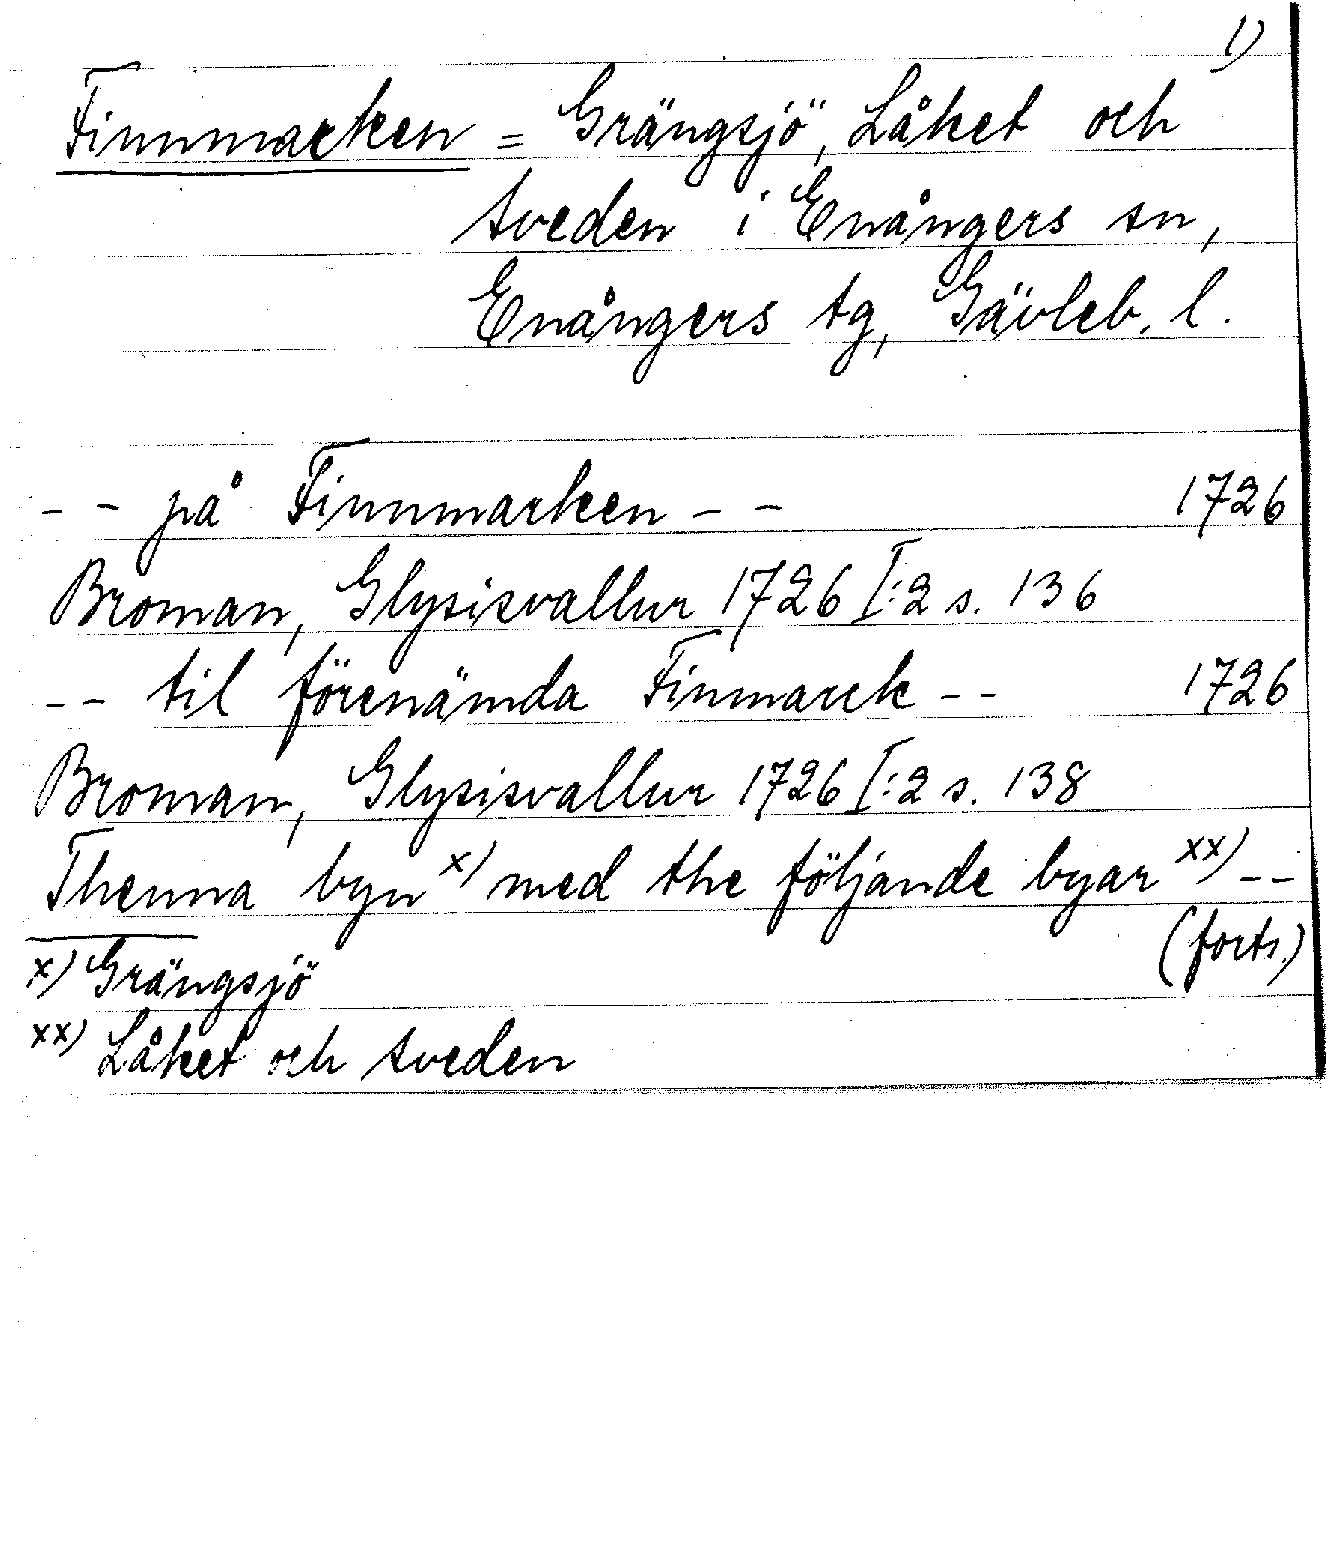 1)
Finnmarken = Grängsjö, Låket och
Sveden i Enångers sn,
Enångers tg, Gävleb. l.
-- på Finnmarken -- 1726
Broman, Glysisvallur 1726 I:2 s. 136
-- til förenämda Finmarck -- 1726
Broman, Glysisvallur 1726 I:2 s. 138
Thenna byn x) med the följande byar xx) --
(forts.)
x) Grängsjö
xx) Låket och Sveden